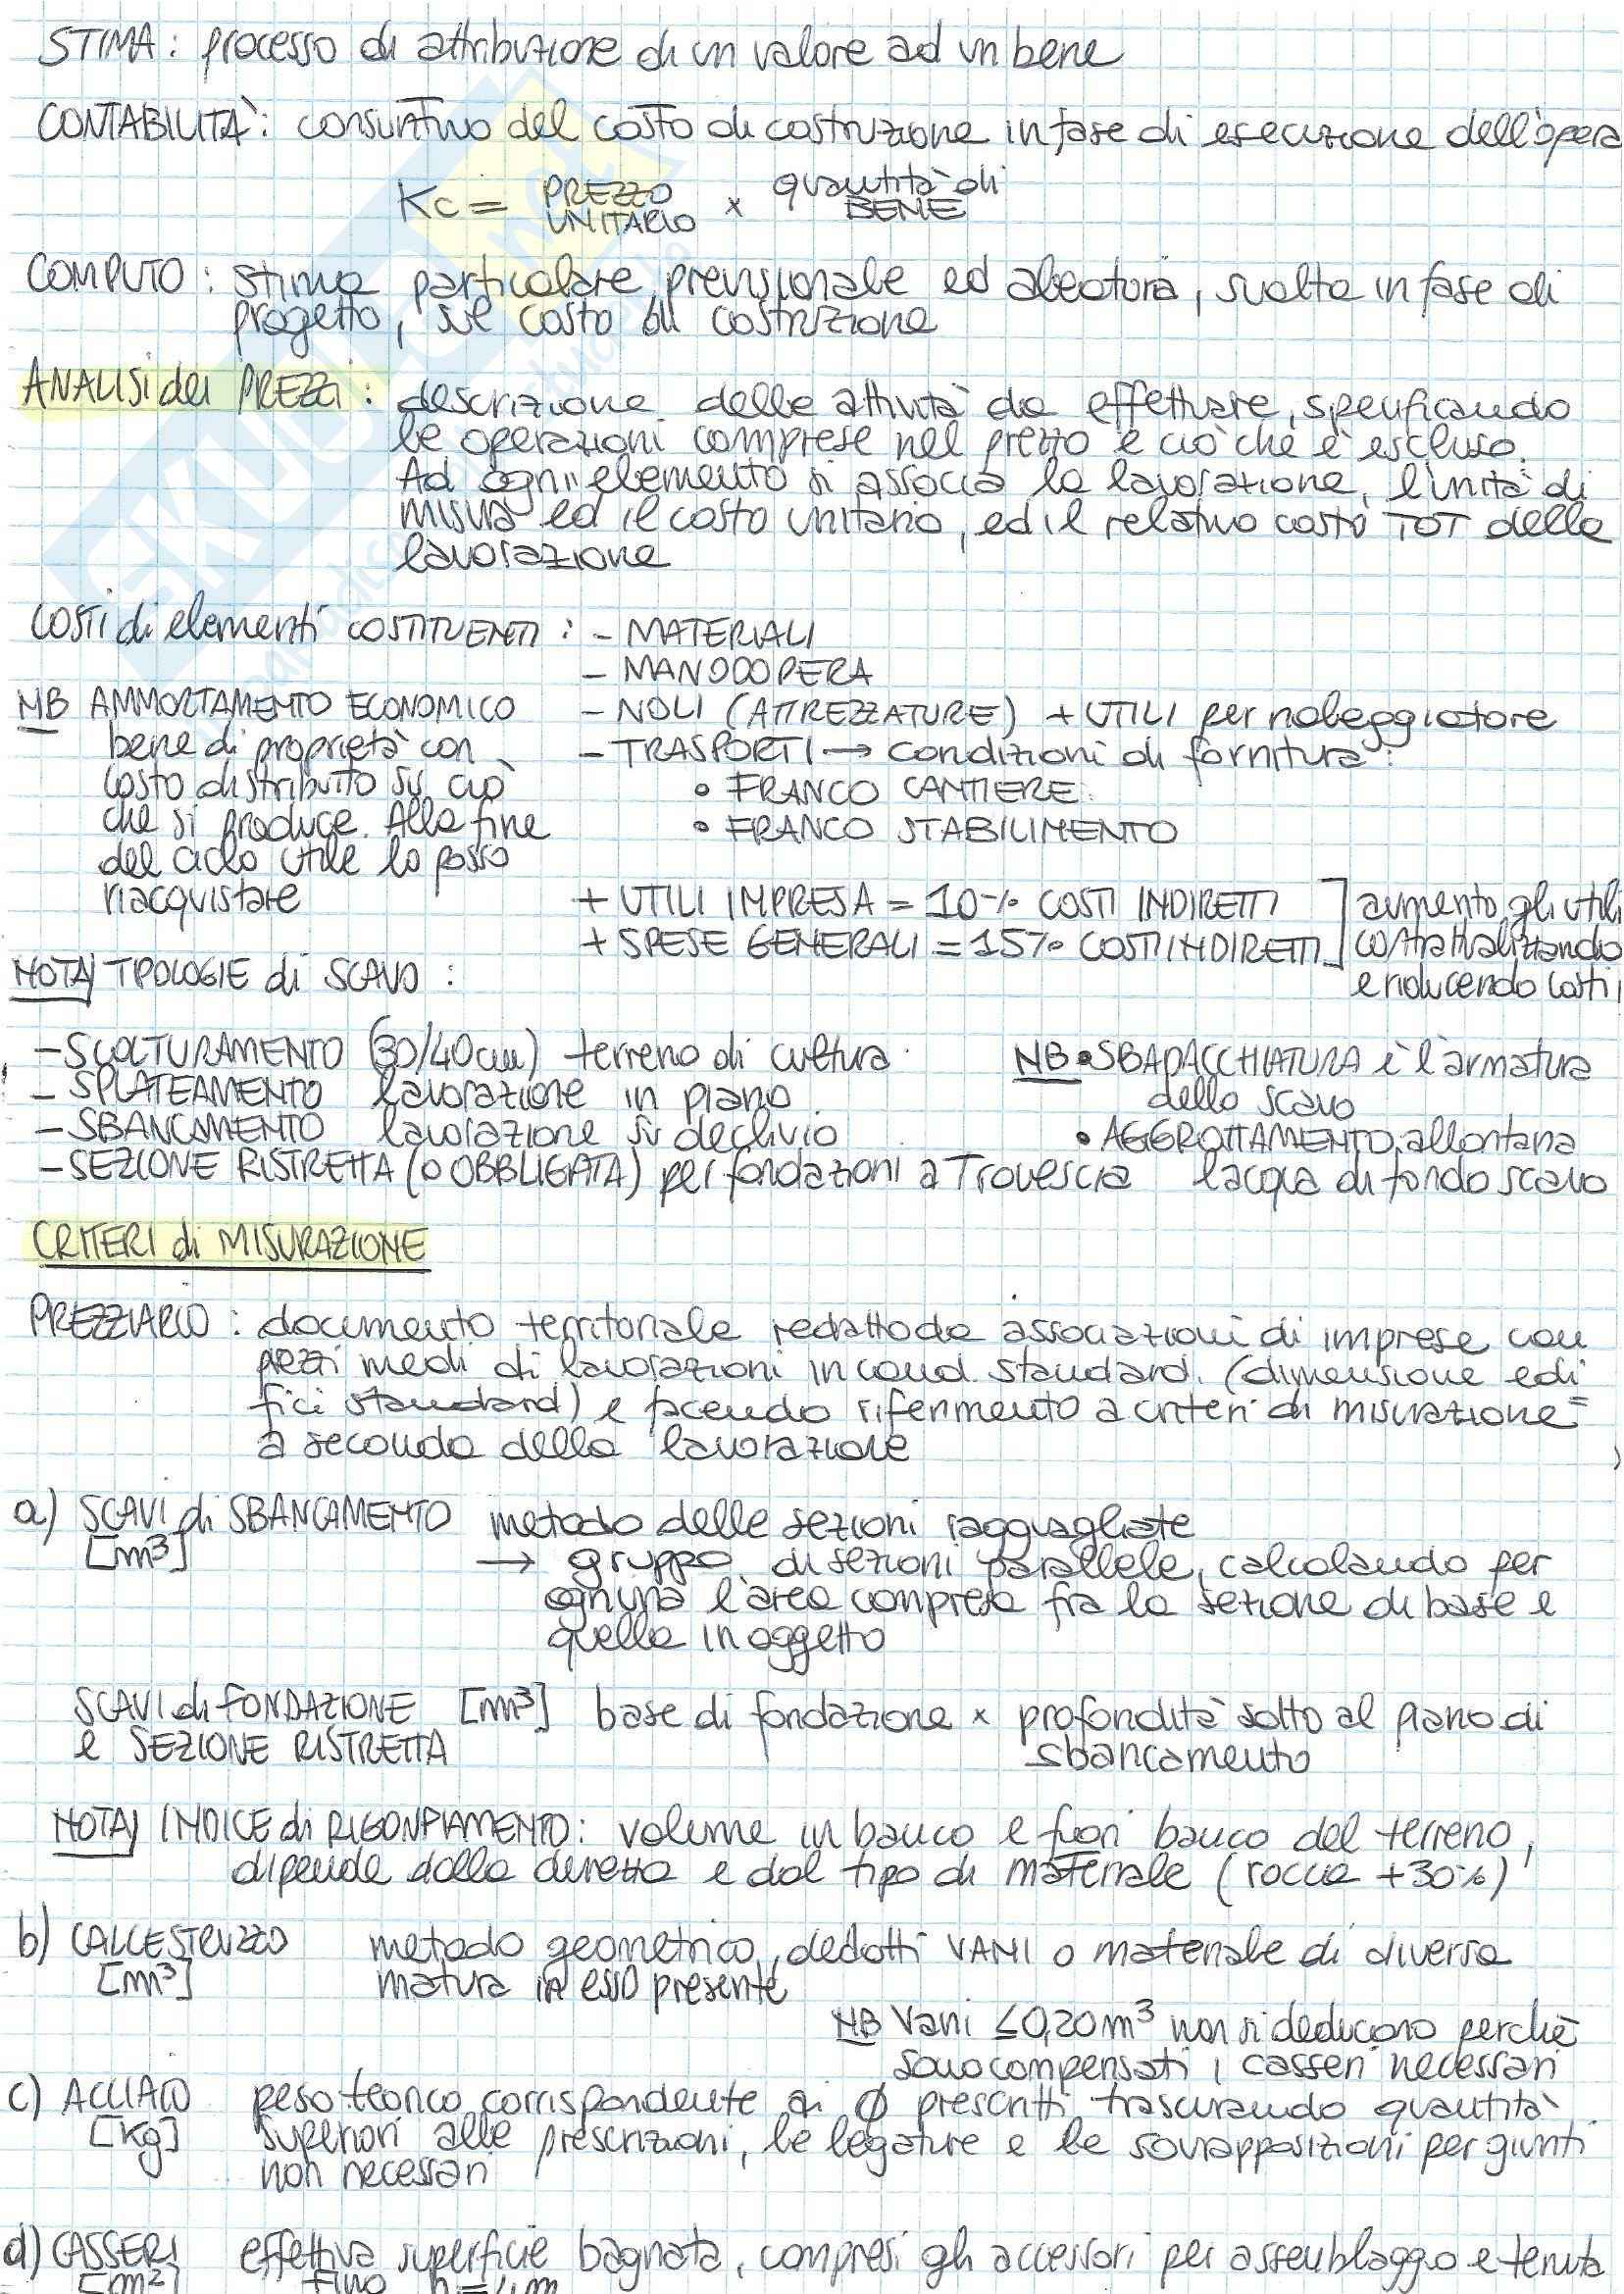 STIMA: processo di attribuzione di un valore ad un bene
CONTABILITÀ: consuntivo del costo di costruzione in fase di esecuzione dell'opera
Kc = PREZZO UNITARIO x quantità di BENE
COMPUTO: stima particolare, previsionale ed aleatoria, svolta in fase di
progetto, sul costo di costruzione
ANALISI dei PREZZI: descrizione delle attività da effettuare, specificando
le operazioni comprese nel prezzo e ciò che è escluso.
Ad ogni elemento si associa la lavorazione, l'unità di
misura ed il costo unitario, ed il relativo costo TOT della
lavorazione
COSTI di elementi COSTITUENTI: - MATERIALI
- MANODOPERA
- NOLI (ATTREZZATURE) + UTILI per noleggiatore
- TRASPORTI → condizioni di fornitura:
• FRANCO CANTIERE
• FRANCO STABILIMENTO
NB AMMORTAMENTO ECONOMICO
bene di proprietà con
costo distribuito su ciò
che si produce. Alla fine
del ciclo utile lo posso
riacquistare
+ UTILI IMPRESA = 10% COSTI INDIRETTI
+ SPESE GENERALI = 15% COSTI INDIRETTI
aumento gli utili
contrattualizzando
e riducendo costi
NOTA/ TIPOLOGIE di SCAVO:
- SCOLTURAMENTO (30/40cm) terreno di cultura
- SPLATEAMENTO lavorazione in piano
- SBANCAMENTO lavorazione su declivio
- SEZIONE RISTRETTA (o OBBLIGATA) per fondazioni a Trovescia
NB • SBADACCHIATURA è l'armatura
dello scavo
• AGGROTTAMENTO allontana
l'acqua di fondo scavo
CRITERI di MISURAZIONE
PREZZIARIO: documento territoriale redatto da associazioni di imprese con
prezzi medi di lavorazioni in cond. standard. (dimensione edi
fici standard) e facendo riferimento a criteri di misurazione=
a seconda della lavorazione
a) SCAVI di SBANCAMENTO metodo delle sezioni ragguagliate
[m³] → gruppo di sezioni parallele, calcolando per
ognuna l'area compresa fra la sezione di base e
quella in oggetto
SCAVI di FONDAZIONE [m³] base di fondazione x profondità sotto al piano di
e SEZIONE RISTRETTA sbancamento
NOTA/ INDICE di RIGONFIAMENTO: volume in banco e fuori banco del terreno,
dipende dalla durezza e dal tipo di materiale (roccia +30%)
b) CALCESTRUZZO metodo geometrico, dedotti VANI o materiale di diversa
[m³] natura in esso presente
NB Vani ≤0,20m³ non si deducono perchè
sono compensati i casseri necessari
c) ACCIAIO peso teorico corrispondente ai Ø prescritti trascurando quantità
[kg] superiori alle prescrizioni, le legature e le sovrapposizioni per giunti
non necessari
d) CASSERI effettiva superficie bagnata, compresi gli accessori per assemblaggio e tenuta
[m²] fino h=4m